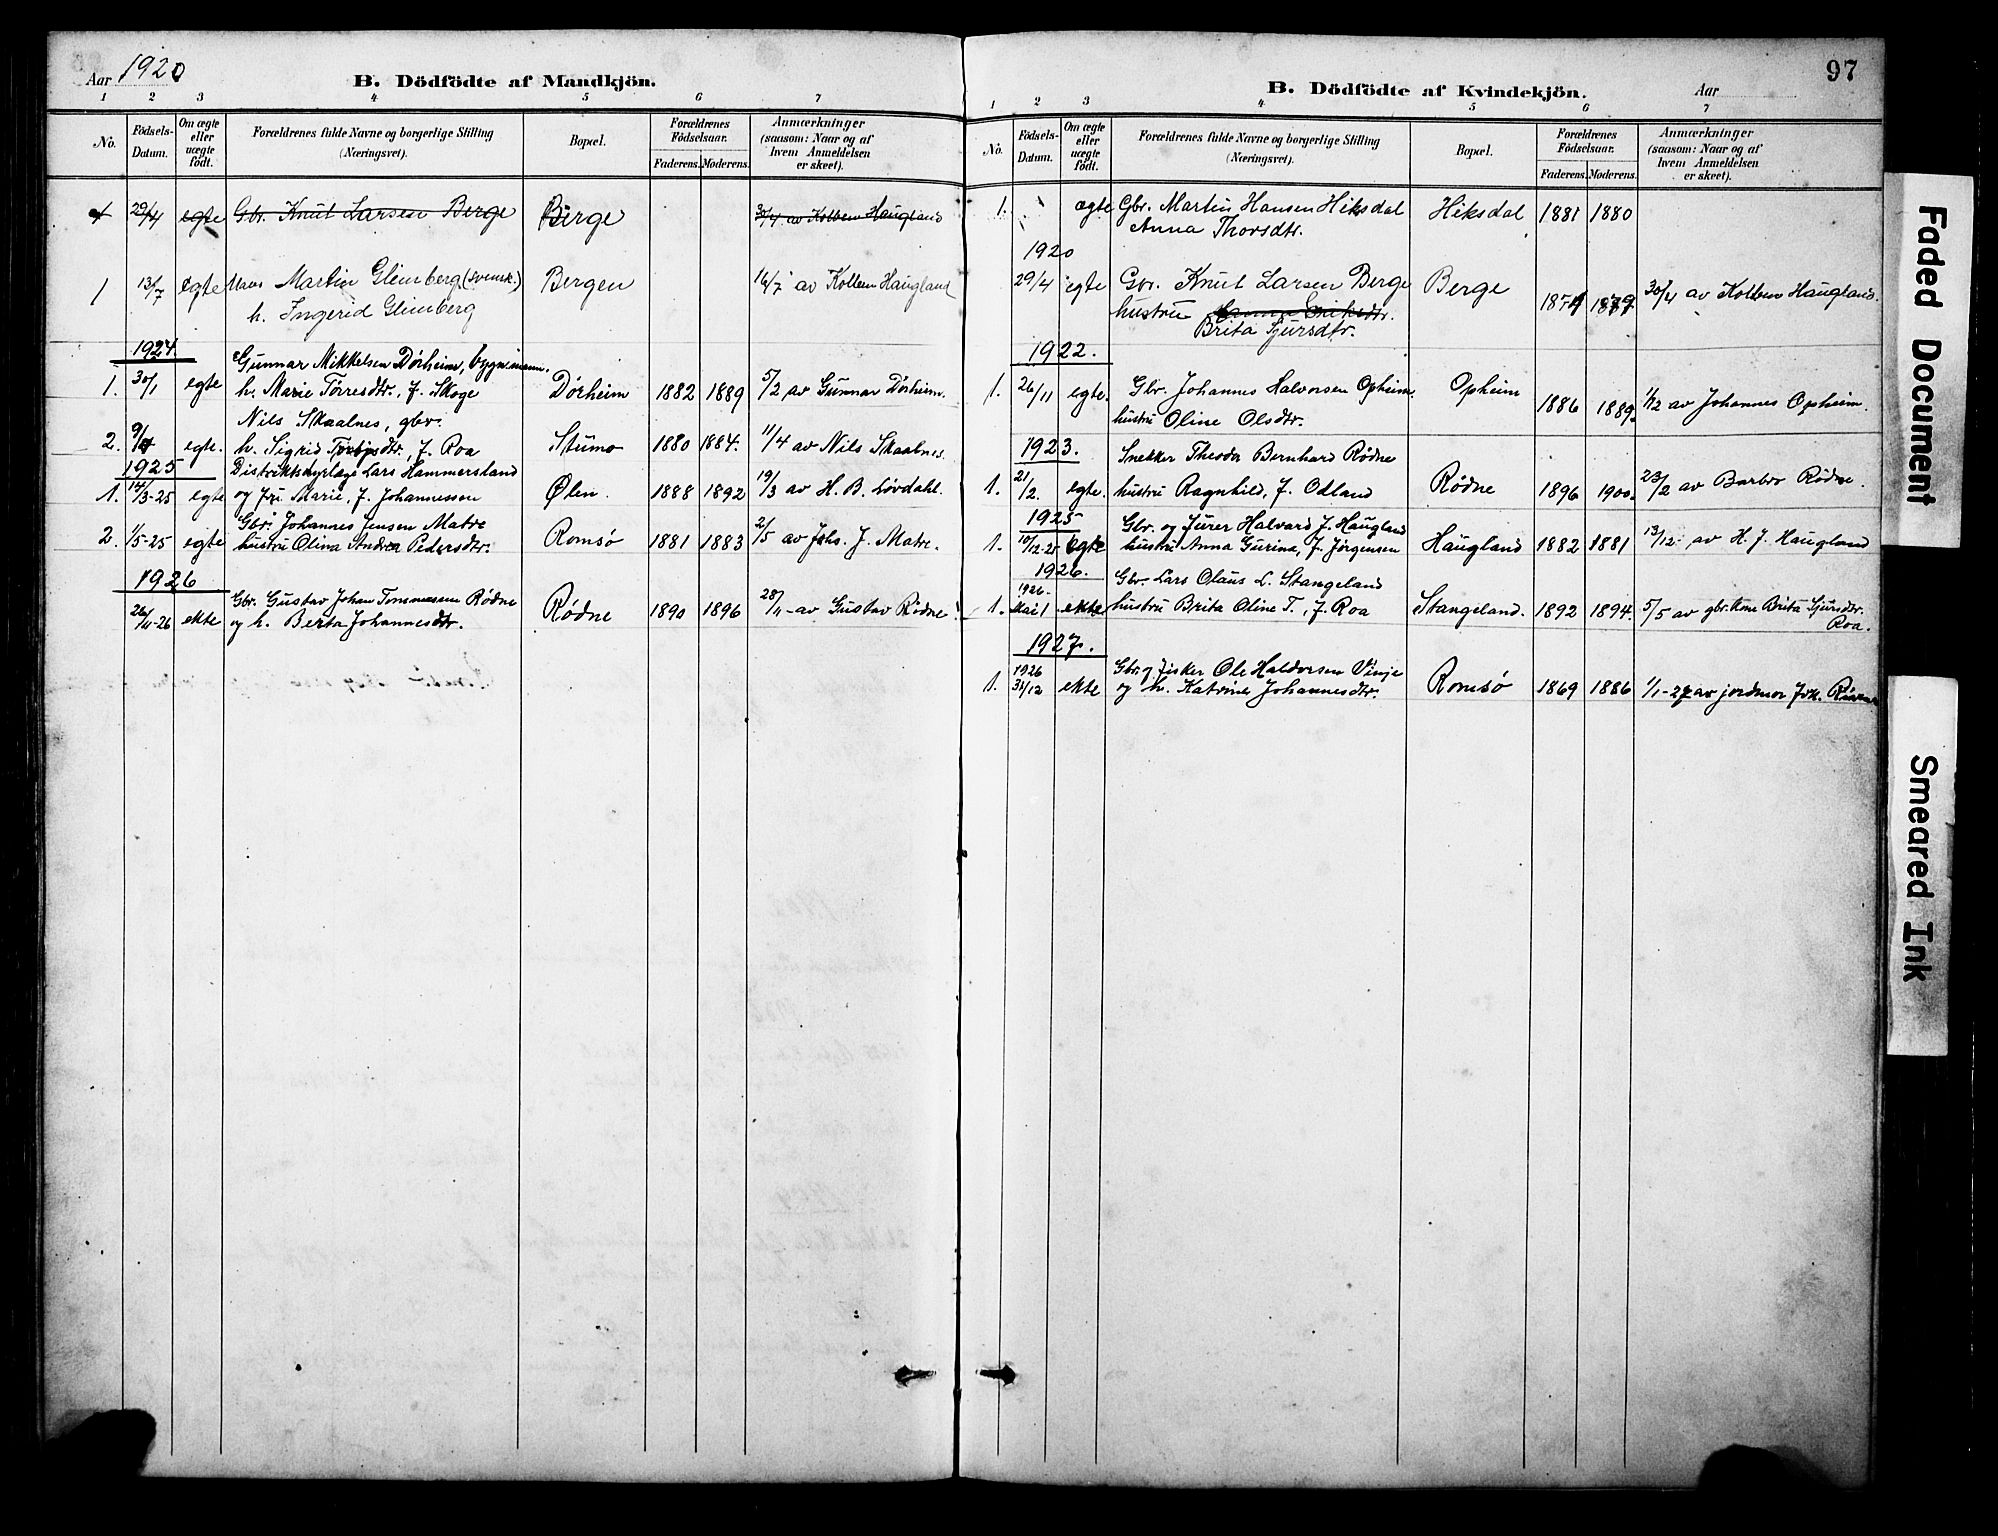 Aar 1920
B. Dödfödte af Mandkjön.
1 2 3 4 5 6 7
No.
Födsels-Datum.
Om ægte eller uægte födt.
Forældrenes fulde Navne og borgerlige Stilling (Næringsvei).
Bopæl.
Forældrenes Födselsaar.
Faderens. Moderens.
Anmærkninger (saasom: Naar og af hvem Anmeldelsen er skeet).
29/4 egte Gbr. Knut Larsen Berge Berge 30/4 av Kolben Haugland
1 13/7 egte Martin Glimberg (svensk.) Bergen 16/7 av Kolben Haugland
h. Ingerid Glimberg
1924
Gunnar Mikkelsen Dørheim, bygn.mann.
1. 30/1 egte h. Marie Tørresdtr., f. Skoge Dørheim 1882 1889 5/2 av Gunnar Dörheim.
Nils Skaalnes, gbr.
2. 9/4 egte. h. Sigrid Torbjsdtr., f. Roa Stumo 1880 1884. 11/4 av Nils Skaalnes.
1925
Distriktsdyrlæge Lars Hammersland
1. 14/3-25 egte og fru Marie, f. Johannessen Ølen. 1888 1892 19/3 av H. B. Lövdahl.
Gbr. Johannes Jensen Matre
2. 1/5-25 egte hustru Olina Andrea Pedersdtr. Romsø 1881 1883 2/5 av Johs. J. Matre.
1926
Gbr. Gustav Johan Tonnessen Rødne
26/11-26 ekte og h. Berta Johannesdtr. Rødne 1890 1896 28/11 - av Gustav Rødne
97
B. Dödfödte af Kvindekjön.
Aar
1 2 3 4 5 6 7
No.
Födsels-Datum.
Om ægte eller uægte födt.
Forældrenes fulde Navne og borgerlige Stilling (Næringsvei).
Bopæl.
Forældrenes Födselsaar.
Faderens. Moderens.
Anmærkninger (saasom: Naar og af hvem Anmeldelsen er skeet).
1. ægte Gbr. Martin Hansen Hiksdal Hiksdal 1881 1880
Anna Thorsdtr.
1920
29/4 egte Gbr. Knut Larsen Berge Berge 1879 30/4 av Kolben Haugland.
hustru Anna Eriksdtr.
Brita Sjursdtr.
1922.
1. 26/11 egte. Gbr. Johannes Halvorsen Opheim. Opheim 1886 1889. 1/12 av Johannes Opheim.
hustru Oline Olsdtr.
1923.
Snekker Theodor Bernhard Rødne
1. 21/2. egte. hustru Ragnhild, f. Odland Rødne 1896 1900. 23/2 av Barbro Rødne.
1925
Gbr. og furer Halvard J. Haugland
1. 10/12-25 egte hustru Anna Gurina, f. Jørgensen Haugland 1882 1881 13/12 av H. J. Haugland
1926.
Gbr. Lars Olaus L. Stangeland
1926.
1. Mai 1 ekte hustru Brita Oline T., f. Roa Stangeland. 1892 1894. 5/5 av gbr. kone Brita Sjursdtr. Roa.
1927.
Gbr. og fisker Ole Haldorsen Vinje
1. 1926 31/12 ekte og h. Katrine Johannesdtr. Romsø 1869 1886 1/1-27 av jordmor
Faded Document
Smeared Ink